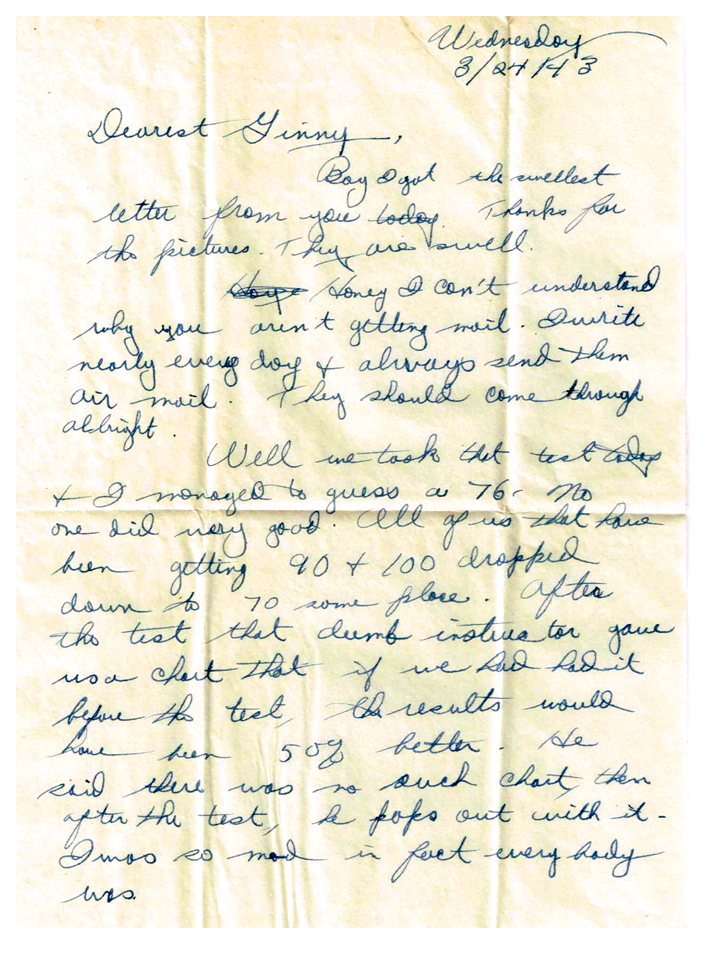 Wednesday
3/24/43
Dearest Ginny,
Boy I got the swellest
letter from you today. Thanks for
the pictures. They are swell.
Honey I can't understand
why you aren't getting mail. I write
nearly every day & always send them
air mail. They should come through
allright.
Well we took that test today
& I managed to guess a 76. No
one did very good. All of us that have
been getting 90 & 100 dropped
down to 70 some place. After
the test that dumb instructor gave
us a chart that if we had had it
before the test, the results would
have been 50% better. He
said there was no such chart, then
after the test, he pops out with it-
I was so mad in fact every body
was.